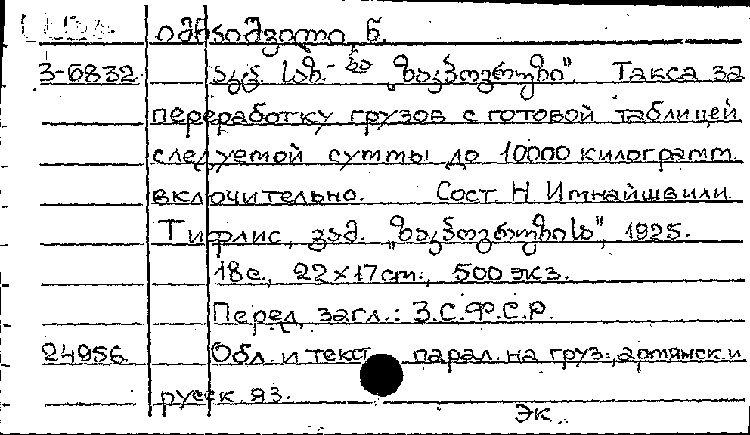 იმნაიშვილი, ნ.
3-6832 აკც. საზ-ბა „ზაკპოგრუზი". Такса за
переработку грузов с готовой таблицей
следуемой суммы до 10000 килограмм.
включительно. Сост. Н Имнайшвили
Тифлис, გამ. 1925.
18с., 22×17cm., 500 экз.
Перед загл.: З.С.Ф.С.Р.
24956 Обл. и текст парал. на груз., армянск и
русск. яз.
Эк.